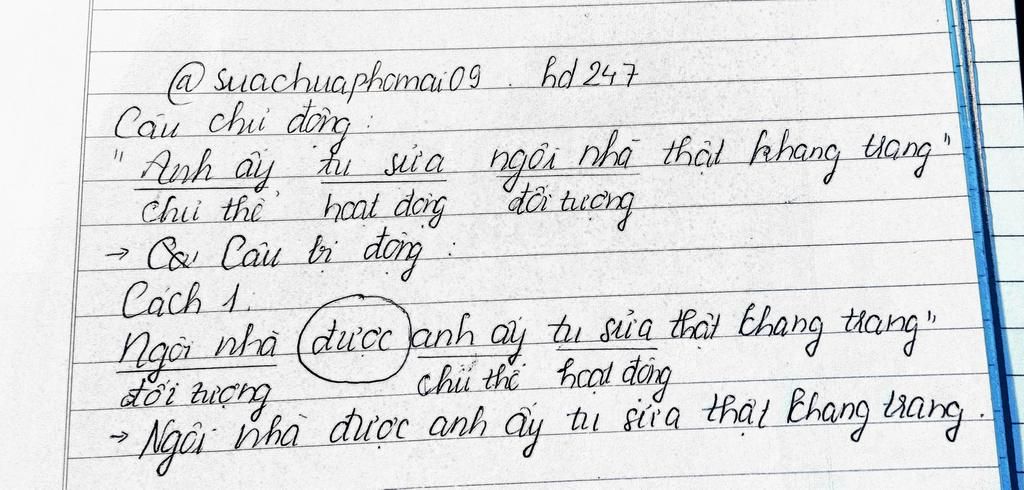 @suachuaphomai09 . hd247
Câu chủ động :
" Anh ấy tu sửa ngôi nhà thật khang trang"
Chủ thể hoạt động đối tượng
→ Câu bị động :
Cách 1.
Ngôi nhà được anh ấy tu sửa thật khang trang"
đối tượng chủ thể hoạt động
→ Ngôi nhà được anh ấy tu sửa thật khang trang.